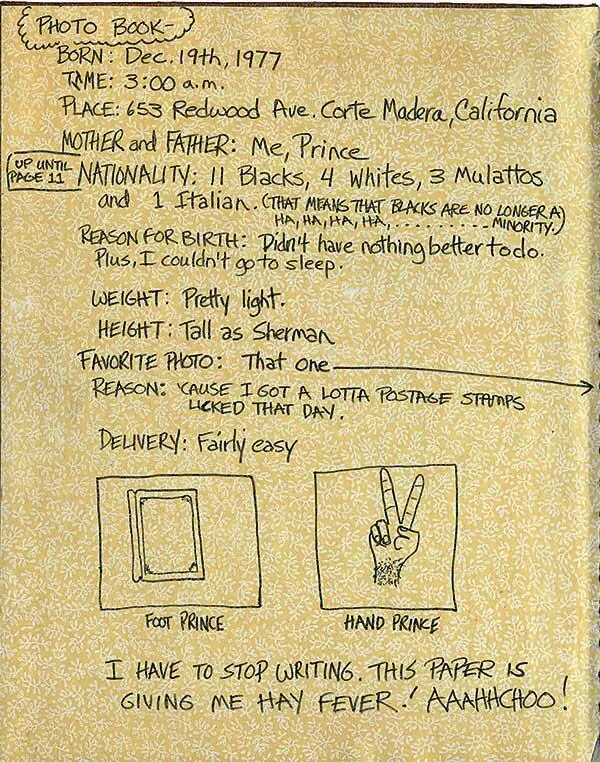 PHOTO BOOK-
BORN: Dec. 19th, 1977
TIME: 3:00 a.m.
PLACE: 653 Redwood Ave. Corte Madera, California
MOTHER and FATHER: Me, Prince
UP UNTIL
PAGE 11
NATIONALITY: 11 Blacks, 4 Whites, 3 Mulattos
and 1 Italian. (THAT MEANS THAT BLACKS ARE NO LONGER A
HA, HA, HA, HA, ......... MINORITY.)
REASON FOR BIRTH: Didn't have nothing better to do.
Plus, I couldn't go to sleep.
WEIGHT: Pretty light.
HEIGHT: Tall as Sherman
FAVORITE PHOTO: That one
REASON: 'CAUSE I GOT A LOTTA POSTAGE STAMPS
LICKED THAT DAY.
DELIVERY: Fairly easy
FOOT PRINCE
HAND PRINCE
I HAVE TO STOP WRITING. THIS PAPER IS
GIVING ME HAY FEVER! AAAHHCHOO!